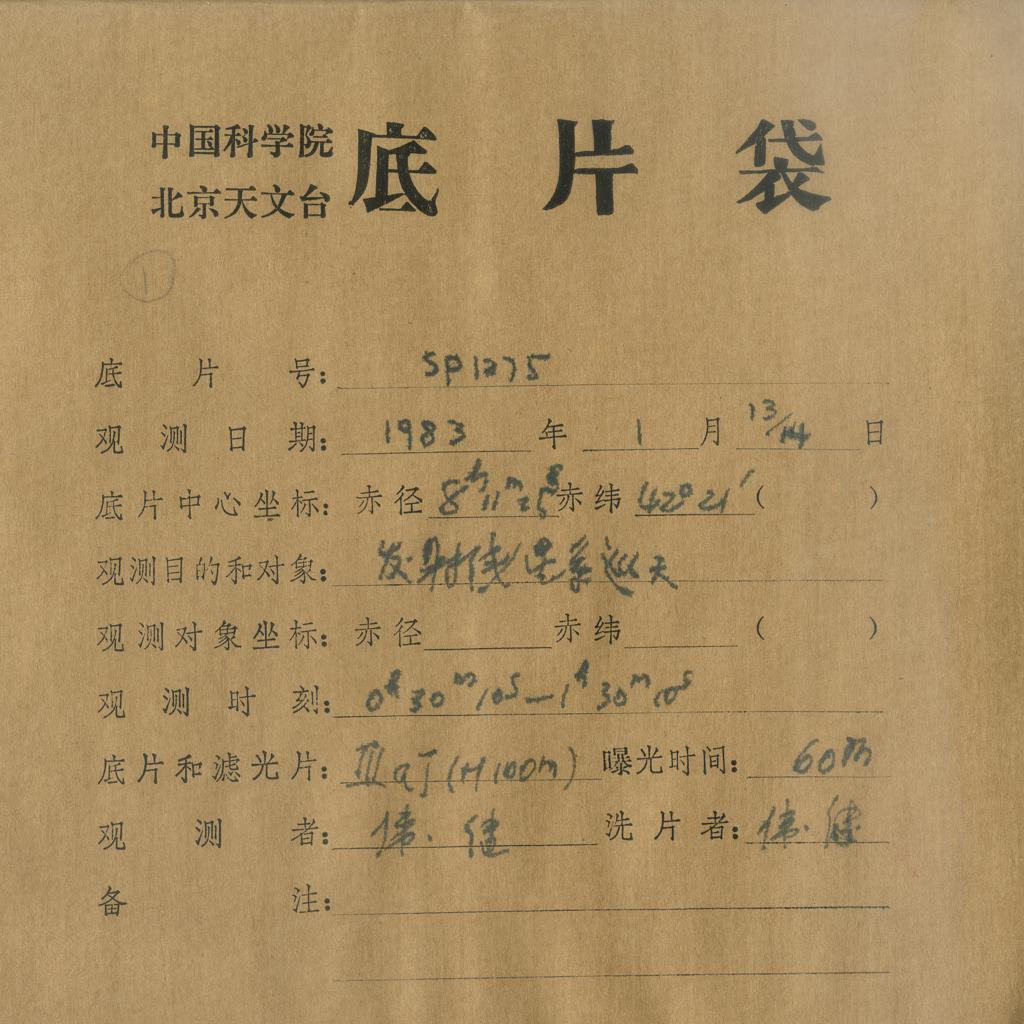 中国科学院
北京天文台
底片袋
①
底片号: SP1275
观测日期: 1983 年 1 月 13/14 日
底片中心坐标: 赤径 8h11m25s 赤纬 42°21′ ( )
观测目的和对象: 发射线星系巡天
观测对象坐标: 赤径 赤纬 ( )
观测时刻: 0h30m10s—1h30m10s
底片和滤光片: ⅢaJ (H100m) 曝光时间: 60m
观测者: 伟. 健 洗片者: 伟. 健
备注: